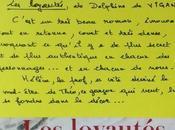 Les loyautés, de Delphine de VIGAN
C'est un très beau roman, émouvant
tout en retenue, court et très dense,
évoquant ce qu'il y a de plus secret
et de plus authentique en chacun de
des personnages... en chacun de nous.
Hélène, la prof, a vite deviné le
mal-être de Théo, ce garçon qui veut
se fondre dans le décor...
Les loyautés